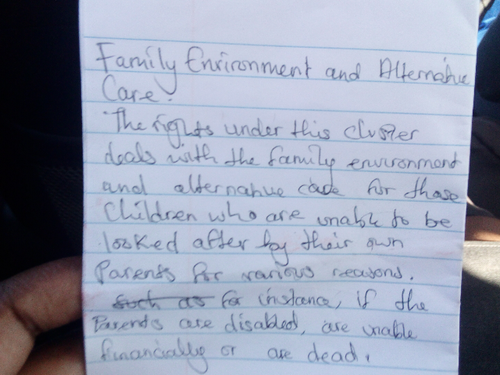 Family Environment and Alternative
Care.
The rights under this cluster
deals with the family environment
and alternative care for those
Children who are unable to be
looked after by their own
Parents for various reasons.
such as for instance, if the
Parents are disabled, are unable
financially or are dead.